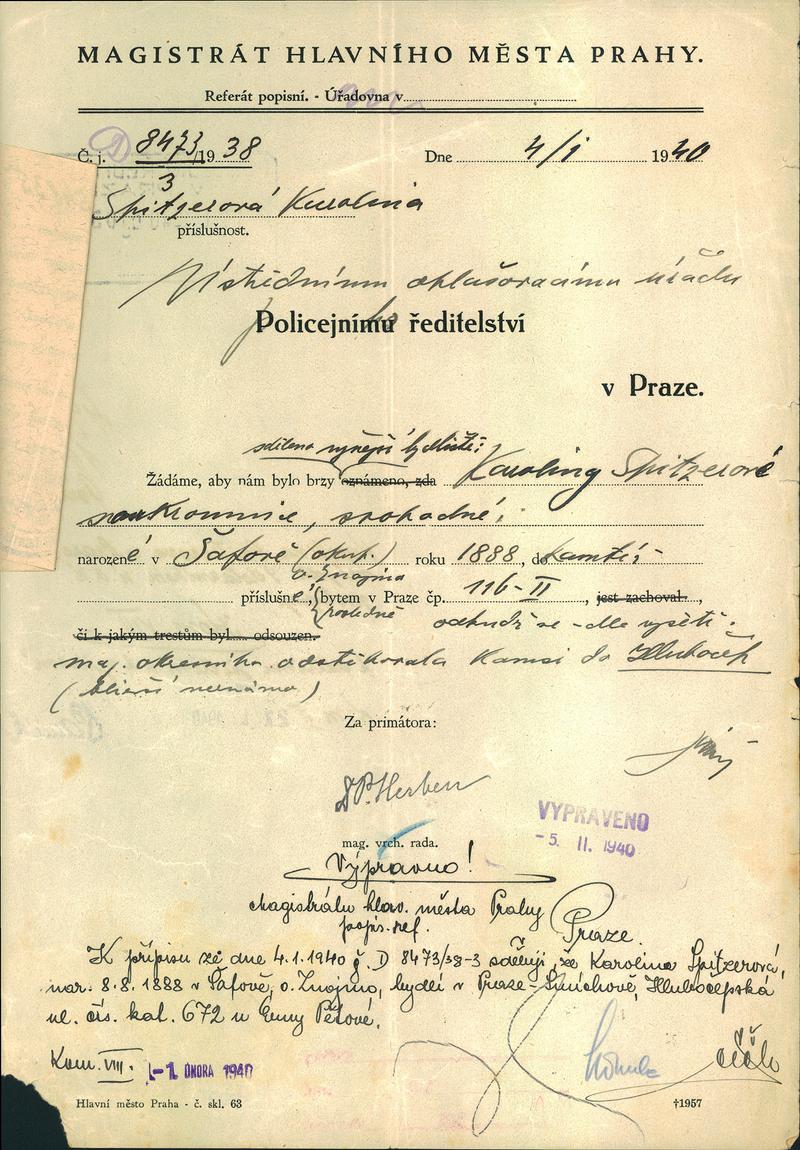 MAGISTRÁT HLAVNÍHO MĚSTA PRAHY.
Referát popisní. - Úřadovna v
Č. j. D 8473/1938 Dne 4/I 1940
3
Spitzerová Karolina
příslušnost.
Ústřednímu ohlašovacímu úřadu
Policejnímu ředitelství
v Praze.
sděleno nynější bydliště:
Žádáme, aby nám bylo brzy oznámeno, zda Karoliny Spitzerové
soukromnice, svobodné,
narozené v Šafově (okup.) roku 1888, do
o. Znojmo
příslušné, bytem v Praze čp. 116-II, jest zachoval
posledně odkudž se -dle
či k jakým trestům byl..... odsouzen.
maj. odstěhovala kamsi do Hlubočep
(bližší neznámo)
Za primátora:
Dr Herben
VYPRAVENO
-5. II. 1940
mag. vrch. rada.
Výpravno!
Magistrátu hlav. města Prahy
popis. ref.
Praze.
K přípisu ze dne 4.1.1940 č. D 8473/38-3 sděluji, že Karolina Spitzerová,
nar. 8.8.1888 v Šafově, o. Znojmo, bydlí v Praze-Smíchově, Hlubočepská
ul. čís. kat. 672 u Emy Pešové.
Kom. VIII. -1. ÚNORA 1940
Hlavní město Praha - č. skl. 63 †1957